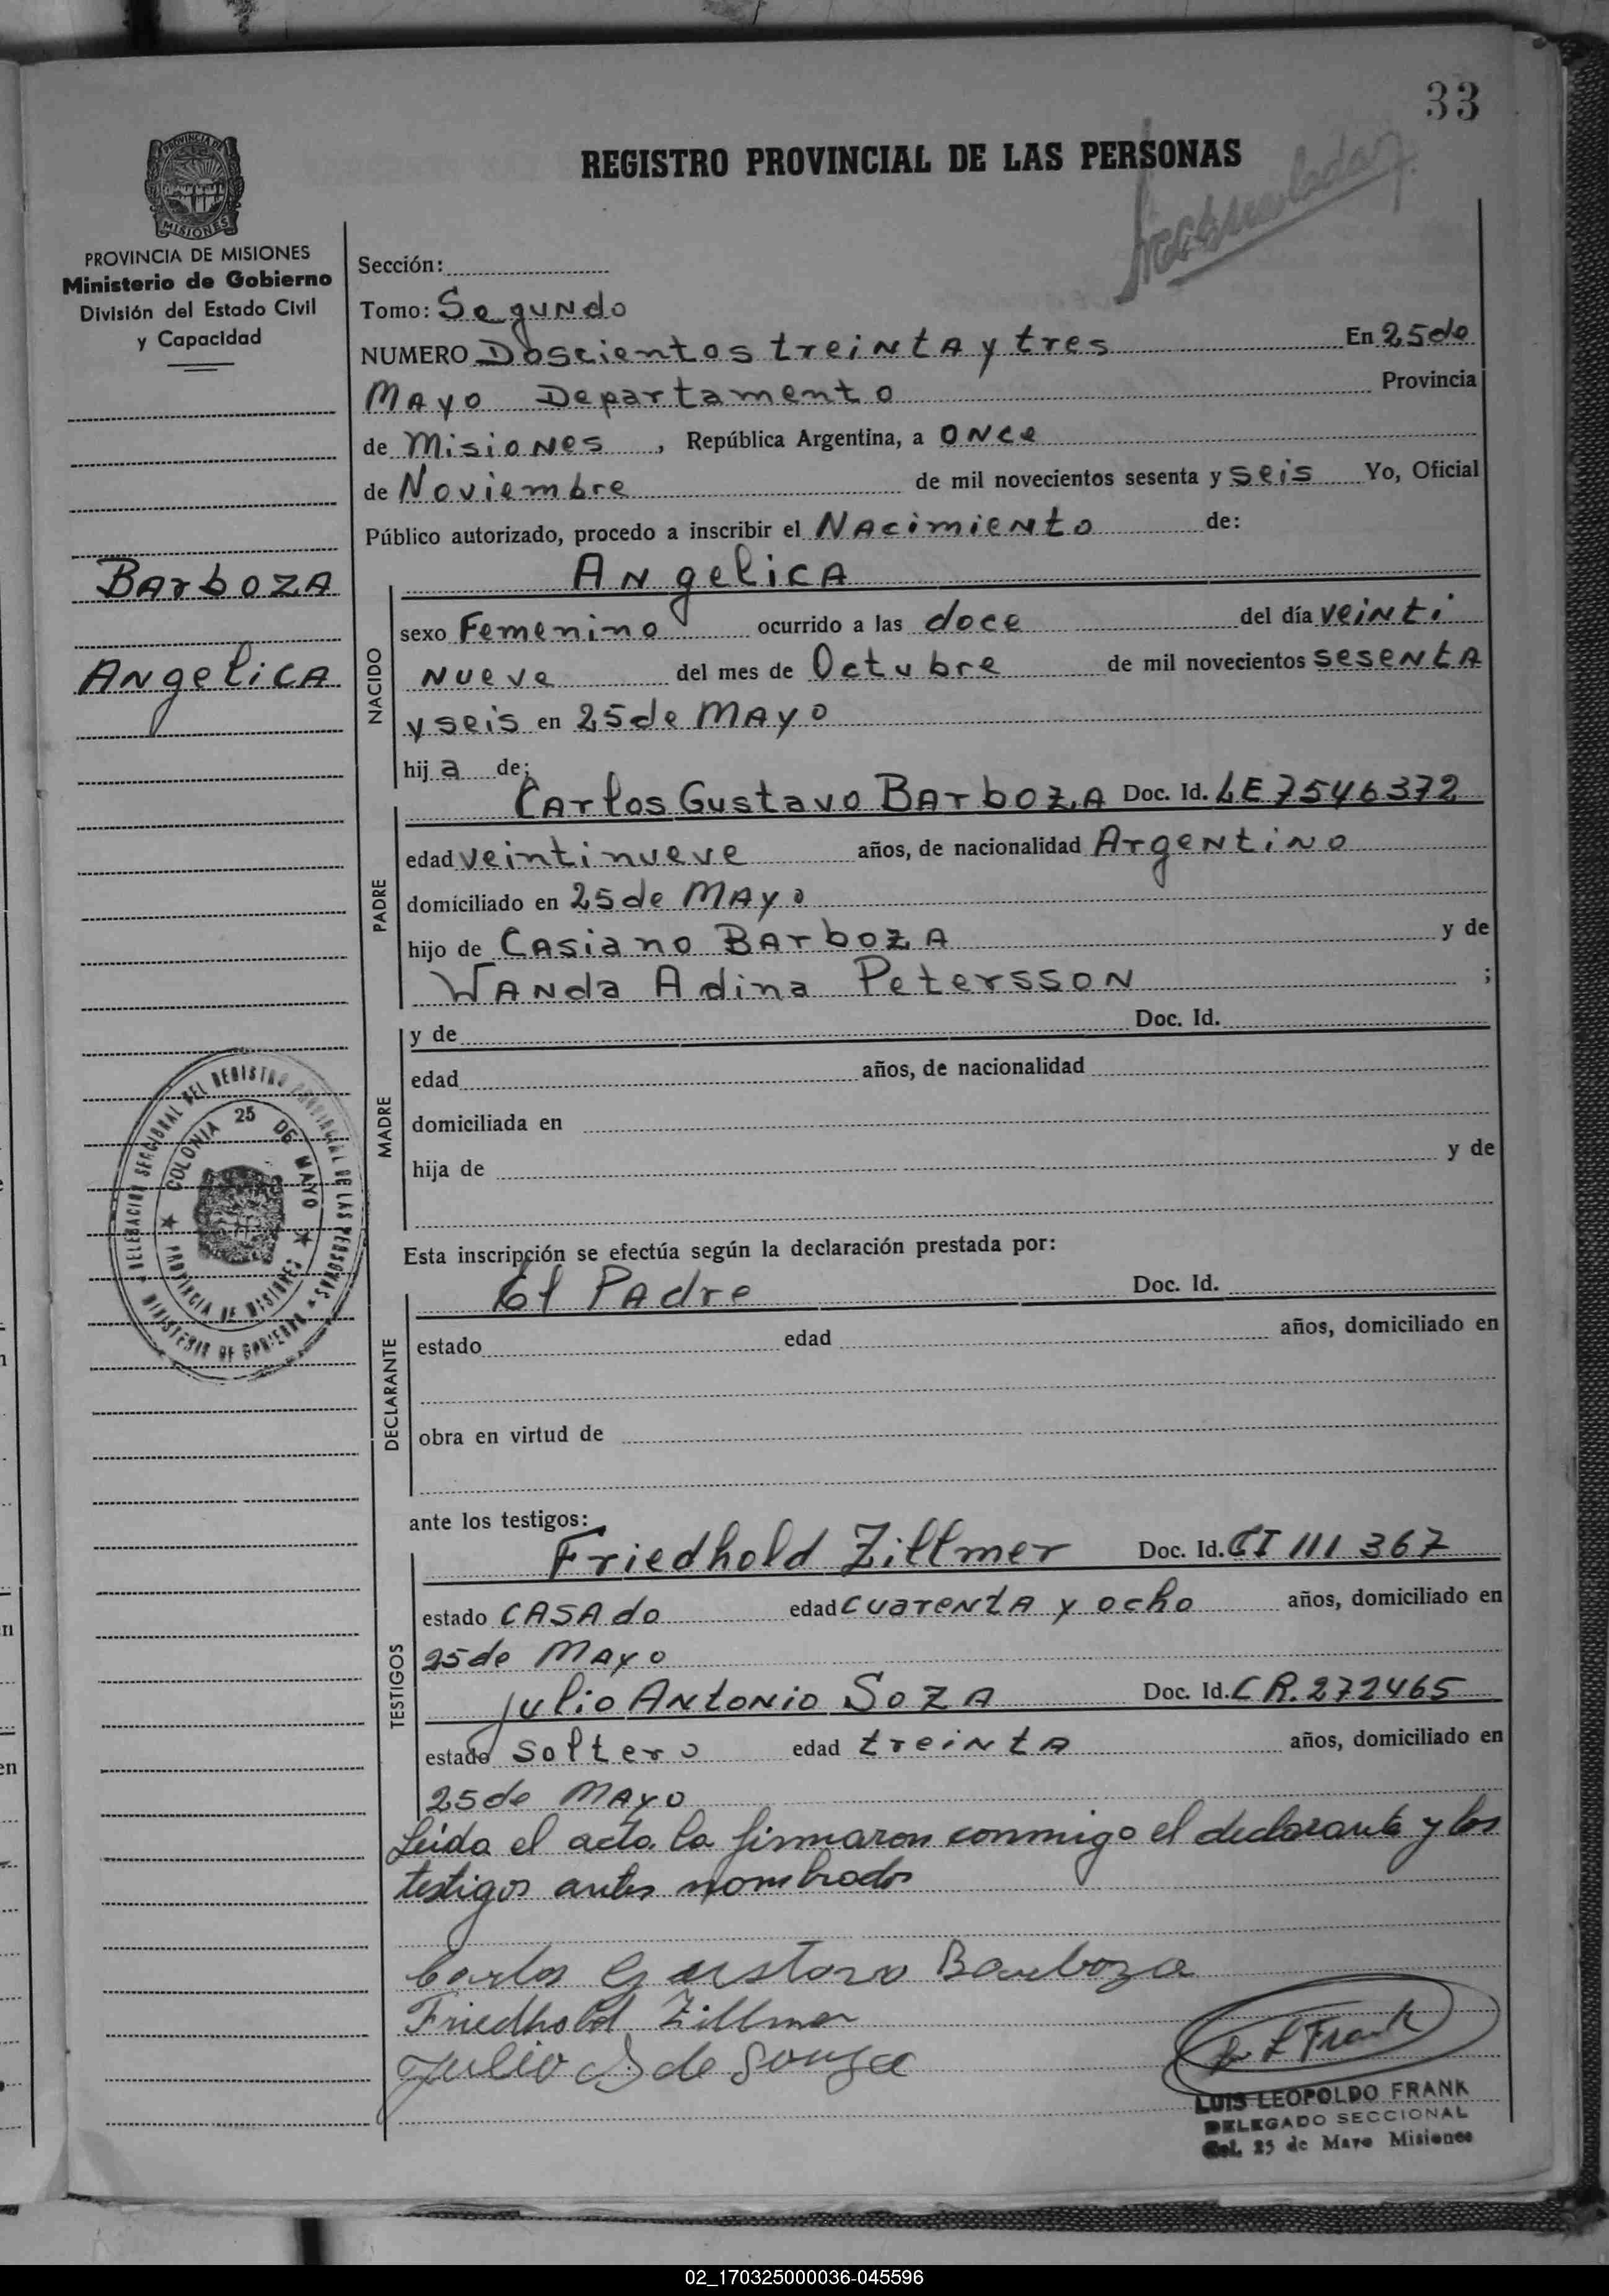 33
REGISTRO PROVINCIAL DE LAS PERSONAS
PROVINCIA DE
MISIONES
PROVINCIA DE MISIONES
Ministerio de Gobierno
División del Estado Civil
y Capacidad
Barboza
Angelica
DELEGACION SECCIONAL DEL REGISTRO PROVINCIAL DE LAS PERSONAS
MINISTERIO DE GOBIERNO
COLONIA 25 DE MAYO
PROVINCIA DE MISIONES
Sección:
Tomo: Segundo
NUMERO Doscientos treinta y tres En 25 de
Mayo Departamento Provincia
de Misiones, República Argentina, a once
de Noviembre de mil novecientos sesenta y seis Yo, Oficial
Público autorizado, procedo a inscribir el Nacimiento de:
Angelica
NACIDO
sexo Femenino ocurrido a las doce del día veinti
nueve del mes de Octubre de mil novecientos sesenta
y seis en 25 de Mayo
hija de:
Carlos Gustavo Barboza Doc. Id. LE 7546372
PADRE
edad veintinueve años, de nacionalidad Argentino
domiciliado en 25 de Mayo
hijo de Casiano Barboza y de
Wanda Adina Petersson ;
y de Doc. Id.
MADRE
edad años, de nacionalidad
domiciliada en
hija de y de
Esta inscripción se efectúa según la declaración prestada por:
El Padre Doc. Id.
DECLARANTE
estado edad años, domiciliado en
obra en virtud de
ante los testigos:
Friedhold Zillmer Doc. Id. CI 111 367
TESTIGOS
estado Casado edad cuarenta y ocho años, domiciliado en
25 de Mayo
Julio Antonio Soza Doc. Id. CR. 272465
estado soltero edad treinta años, domiciliado en
25 de Mayo
Leida el acta la firmaron conmigo el declarante y los
testigos antes nombrados
Carlos Gustavo Barboza
Friedhold Zillmer
Julio A de Souza
L L Frank
LUIS LEOPOLDO FRANK
DELEGADO SECCIONAL
Col. 25 de Mayo Misiones
02_170325000036-045596